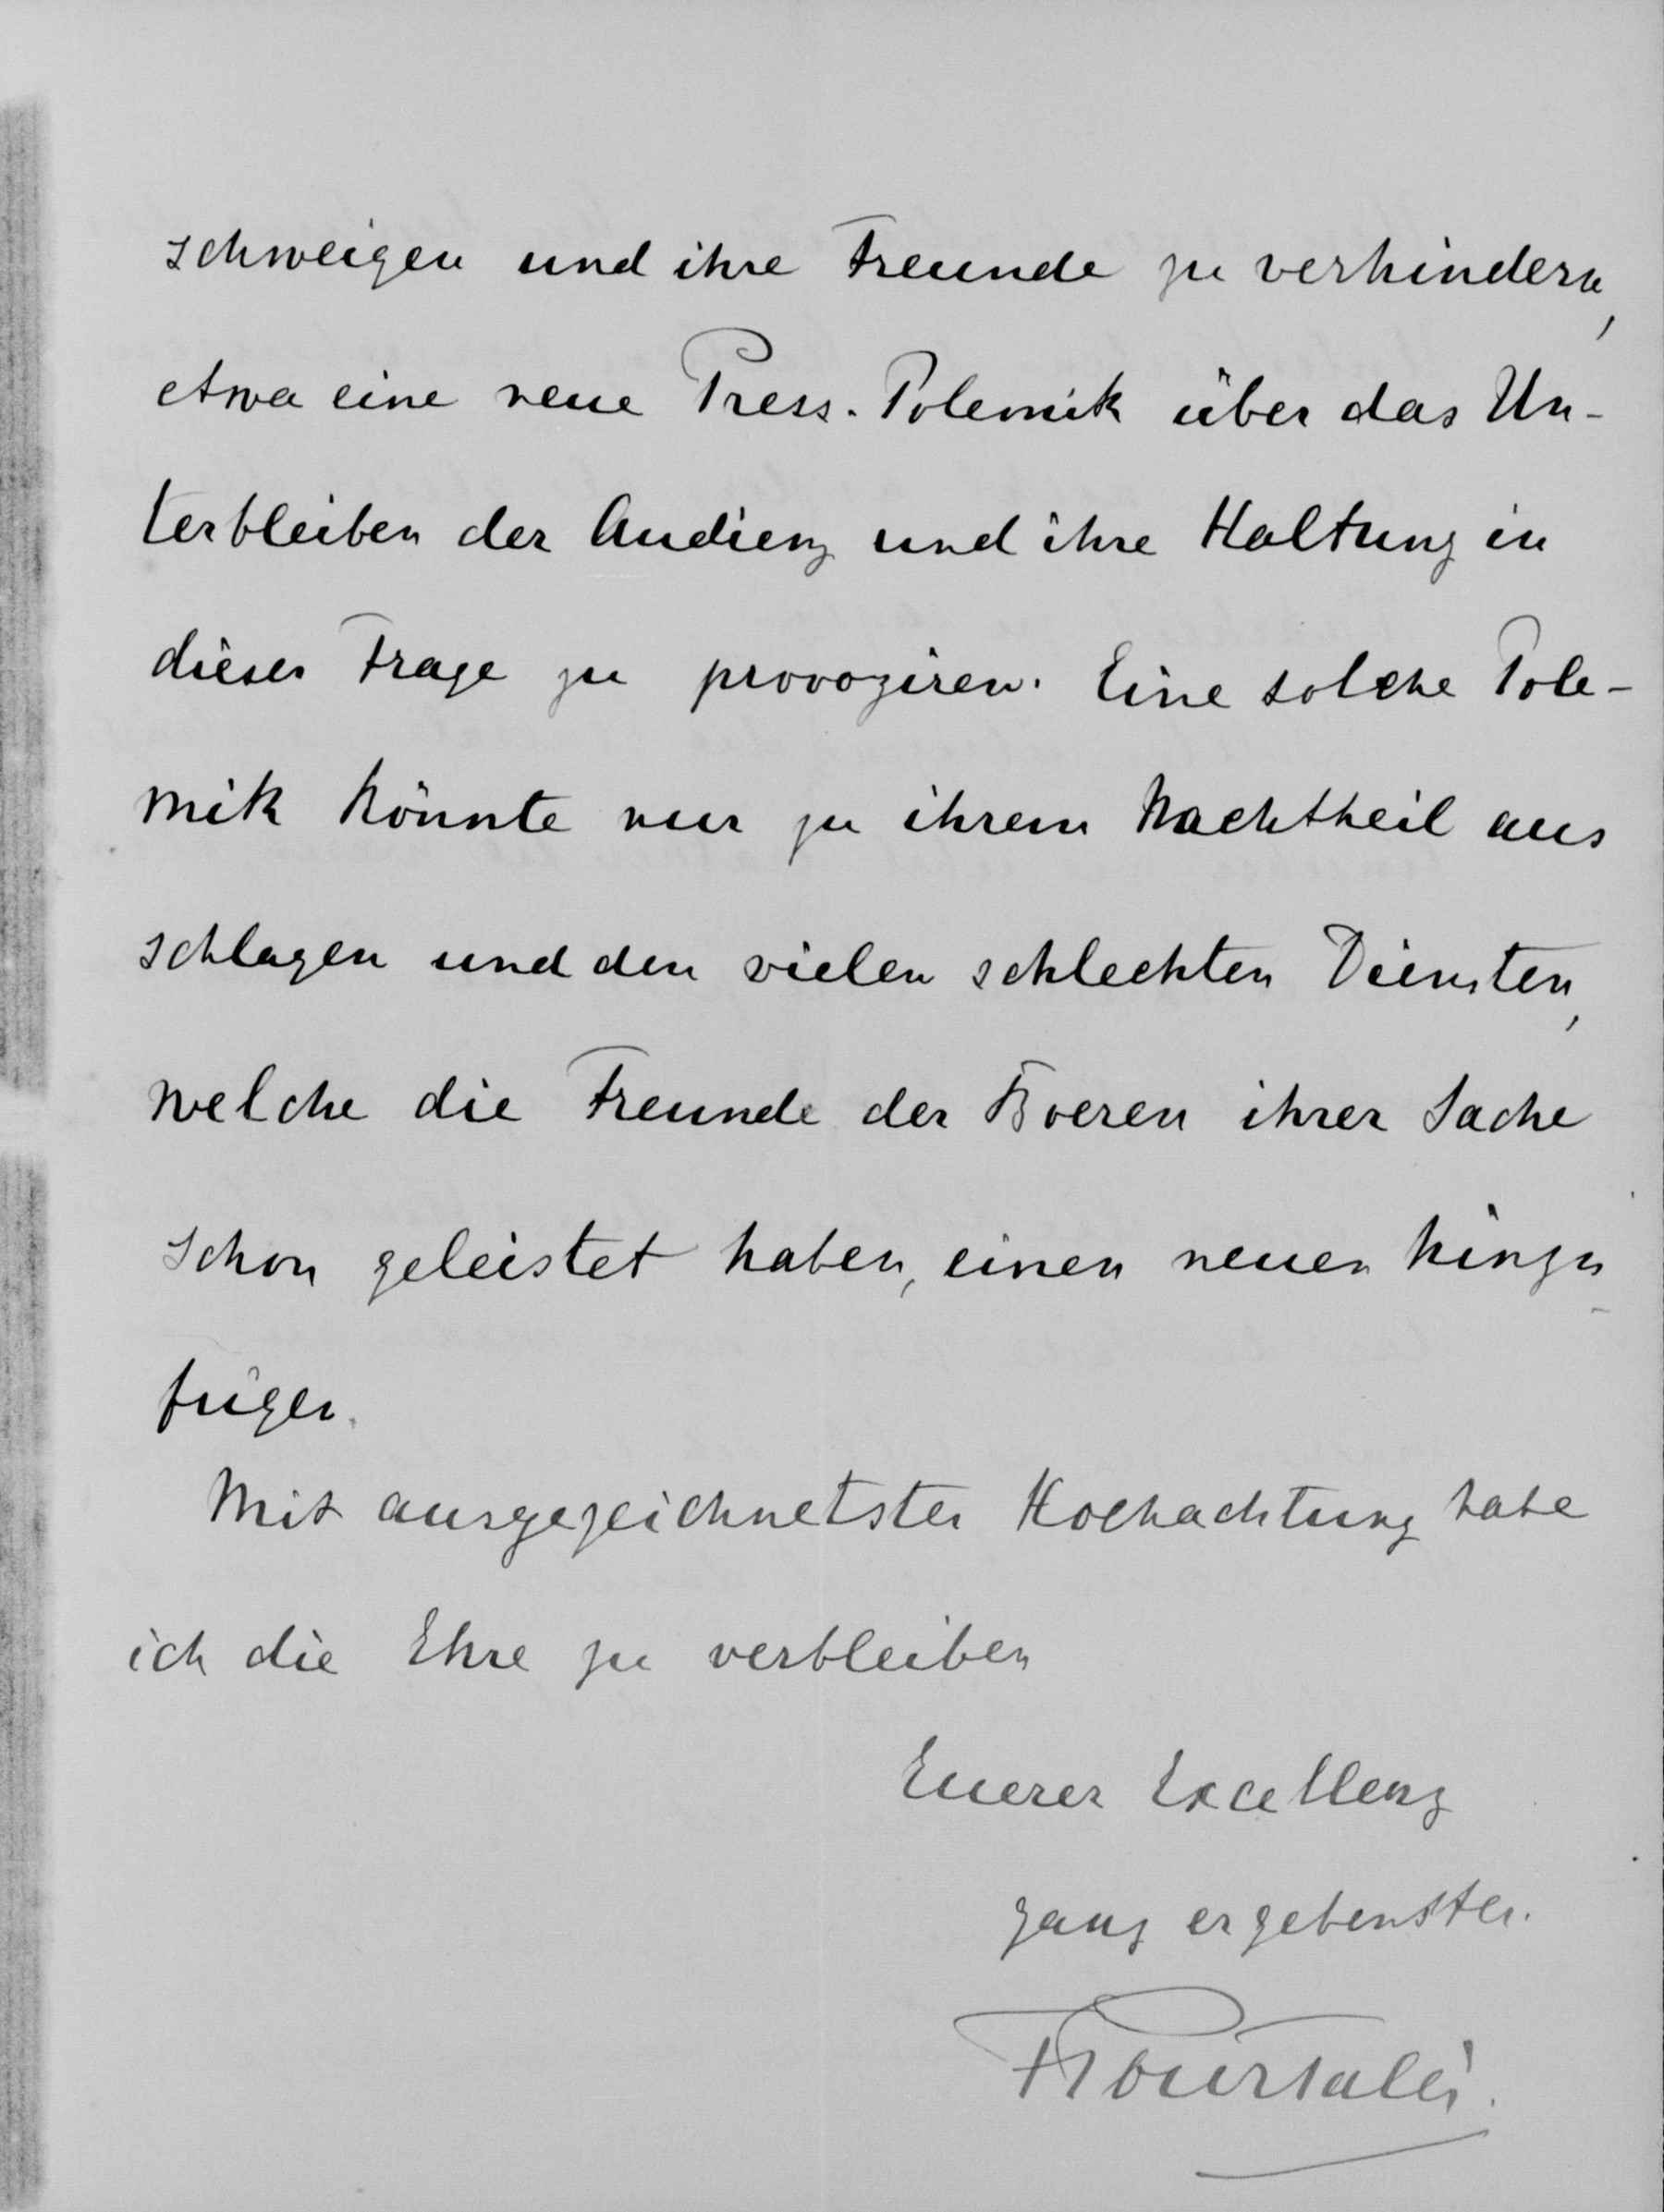 schweigen und ihre Freunde zu verhindern,
etwa eine neue Press-Polemik über das Un-
terbleiben der Audienz und ihre Haltung in
dieser Frage zu provoziren. Eine solche Pole-
mik könnte nur zu ihrem Nachtheil aus
schlagen und den vielen schlechten Diensten,
welche die Freunde der Boeren ihrer Sache
schon geleistet haben, einen neuen hinzu
fügen.
Mit ausgezeichnetster Hochachtung habe
ich die Ehre zu verbleiben
Euerer Excellenz
ganz ergebenster.
FPourtalès.